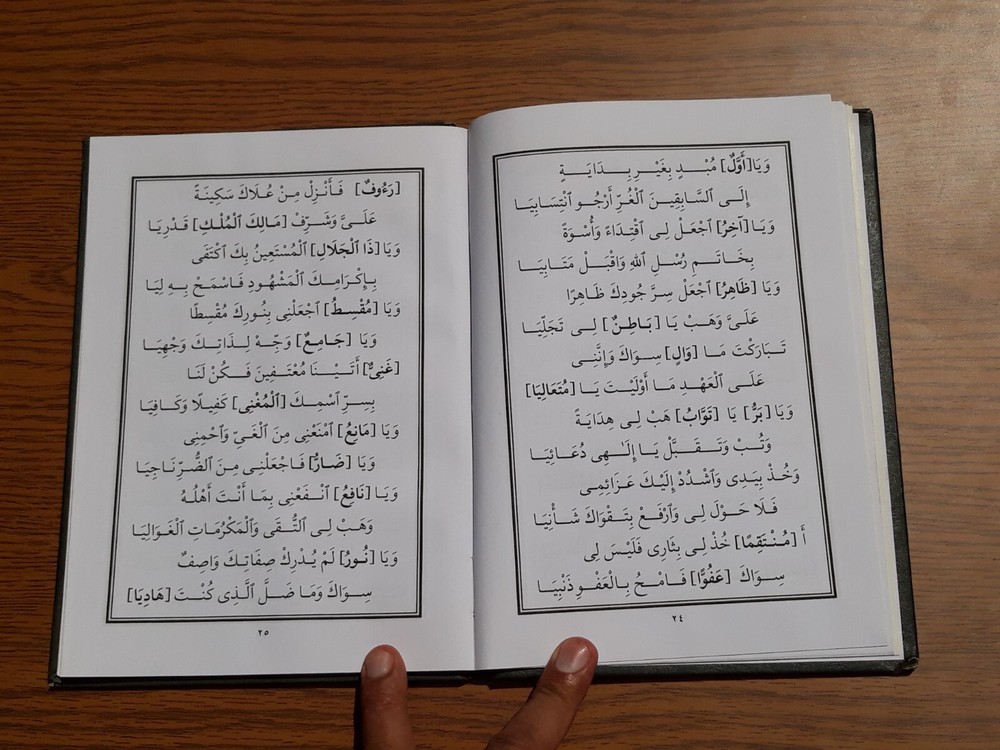 وَيَا[أَوَّلٌ] مُبْدٍ بِغَيْرِ بِدَايَةٍ
إِلَى ٱلسَّابِقِينَ ٱلْغُرِّ أَرْجُو ٱنْتِسَابِيَا
وَيَا[آخِرُ] ٱجْعَلْ لِى ٱقْتِدَاءً وَأُسْوَةً
بِخَاتَمِ رُسْلِ اللهِ وَاقْبَلْ مَتَابِيَا
وَيَا [ظَاهِرُ] ٱجْعَلْ سِرَّ جُودِكَ ظَاهِرًا
عَلَىَّ وَهَبْ يَا [بَاطِنٌ] لِى تَجَلِّيَا
تَبَارَكْتَ مَا [وَالٍ] سِوَاكَ وَإِنَّنِى
عَلَى الْعَهْدِ مَا أَوْلَيْتَ يَا [مُتَعَالِيَا]
وَيَا[بَرُّ] يَا [تَوَّابُ] هَبْ لِى هِدَايَةً
وَتُبْ وَتَقَبَّلْ يَا إِلَهِى دُعَائِيَا
وَخُذْ بِيَدِى وَٱشْدُدْ إِلَيْكَ عَزَائِمِى
فَلَا حَوْلَ لِى وَٱرْفَعْ بِتَقْوَاكَ شَأْنِيَا
أَ [مُنْتَقِمًا] خُذْ لِى بِثَارِى فَلَيْسَ لِى
سِوَاكَ [عَفُوًّا] فَامْحُ بِالْعَفْوِ ذَنْبِيَا
٢٤
[رَءُوفٌ] فَأَنْزِلْ مِنْ عُلَاكَ سَكِينَةً
عَلَىَّ وَشَرِّفْ [مَالِكَ الْمُلْكِ] قَدْرِيَا
وَيَا [ذَا الْجَلَالِ] ٱلْمُسْتَعِينُ بِكَ ٱكْتَفَى
بِإِكْرَامِكَ الْمَشْهُودِ فَاسْمَحْ بِهِ لِيَا
وَيَا [مُقْسِطُ] ٱجْعَلْنِى بِنُورِكَ مُقْسِطًا
وَيَا [جَامِعٌ] وَجِّهْ لِذَاتِكَ وَجْهِيَا
[غَنِىٌّ] أَتَيْنَا مُعْتَفِينَ فَكُنْ لَنَا
بِسِرِّ ٱسْمِكَ [الْمُغْنِى] كَفِيلًا وَكَافِيَا
وَيَا [مَانِعُ] ٱمْنَعْنِى مِنَ الْغَىِّ وَٱحْمِنِى
وَيَا [ضَارُّ] فَاجْعَلْنِى مِنَ الضُّرِّ نَاجِيَا
وَيَا [نَافِعُ] ٱنْفَعْنِى بِمَا أَنْتَ أَهْلُهُ
وَهَبْ لِى ٱلتُّقَى وَالْمَكْرُمَاتِ الْغَوَالِيَا
وَيَا [نُورُ] لَمْ يُدْرِكْ صِفَاتِكَ وَاصِفٌ
سِوَاكَ وَمَا ضَلَّ ٱلَّذِى كُنْتَ [هَادِيَا]
٢٥